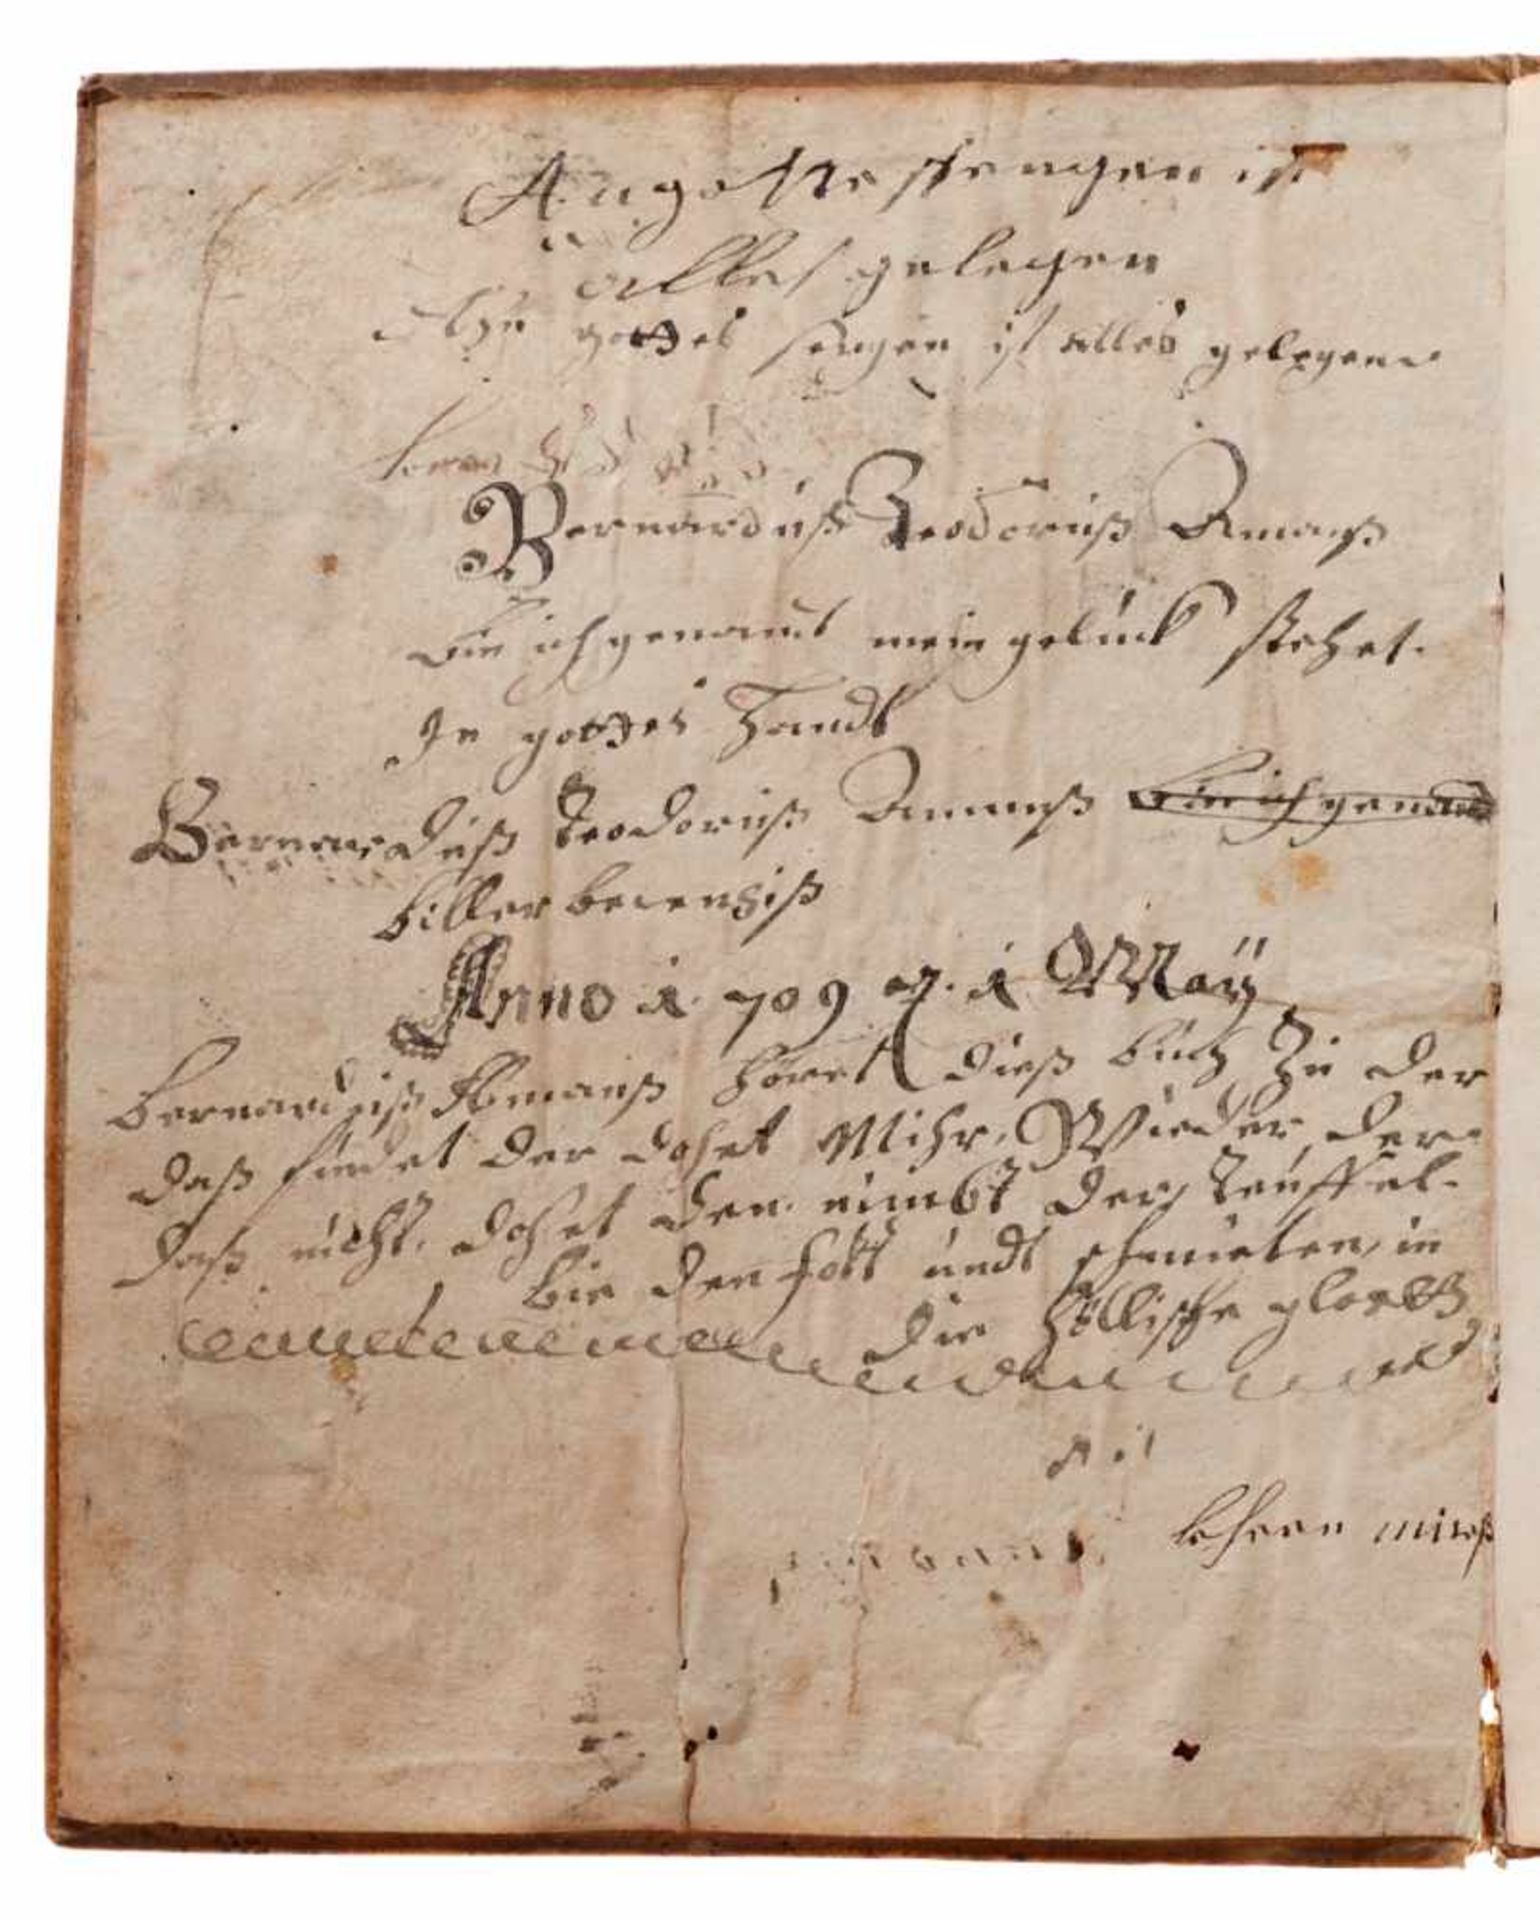 An gottes sengen ist
alles gelegen
An gottes sengen ist alles gelegen
Bernardus Teodoruß Amanß
bin ich genannt mein gelück stehet
In gottes Handt
Bernarduß Teodoruß Amanß bin ich genandt
billerbecensiß
Anno 1709 d. 1 Maÿ
Bernarduß Amanß höret dieß buch zu der
daß findet der dohet Mihr Wieder, der
daß nicht dohet den nimbt der teuffel
bie den fott undt schmieten in
die höllische gloett